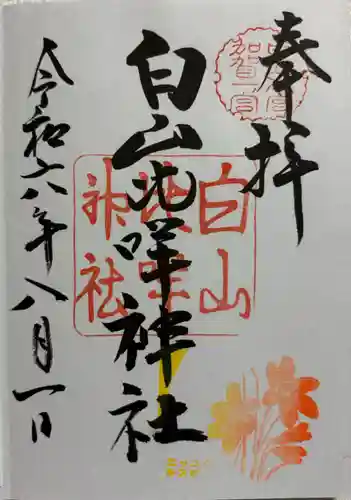 奉拝
加賀一宮
白山比咩神社
白山比咩神社
令和六年八月一日